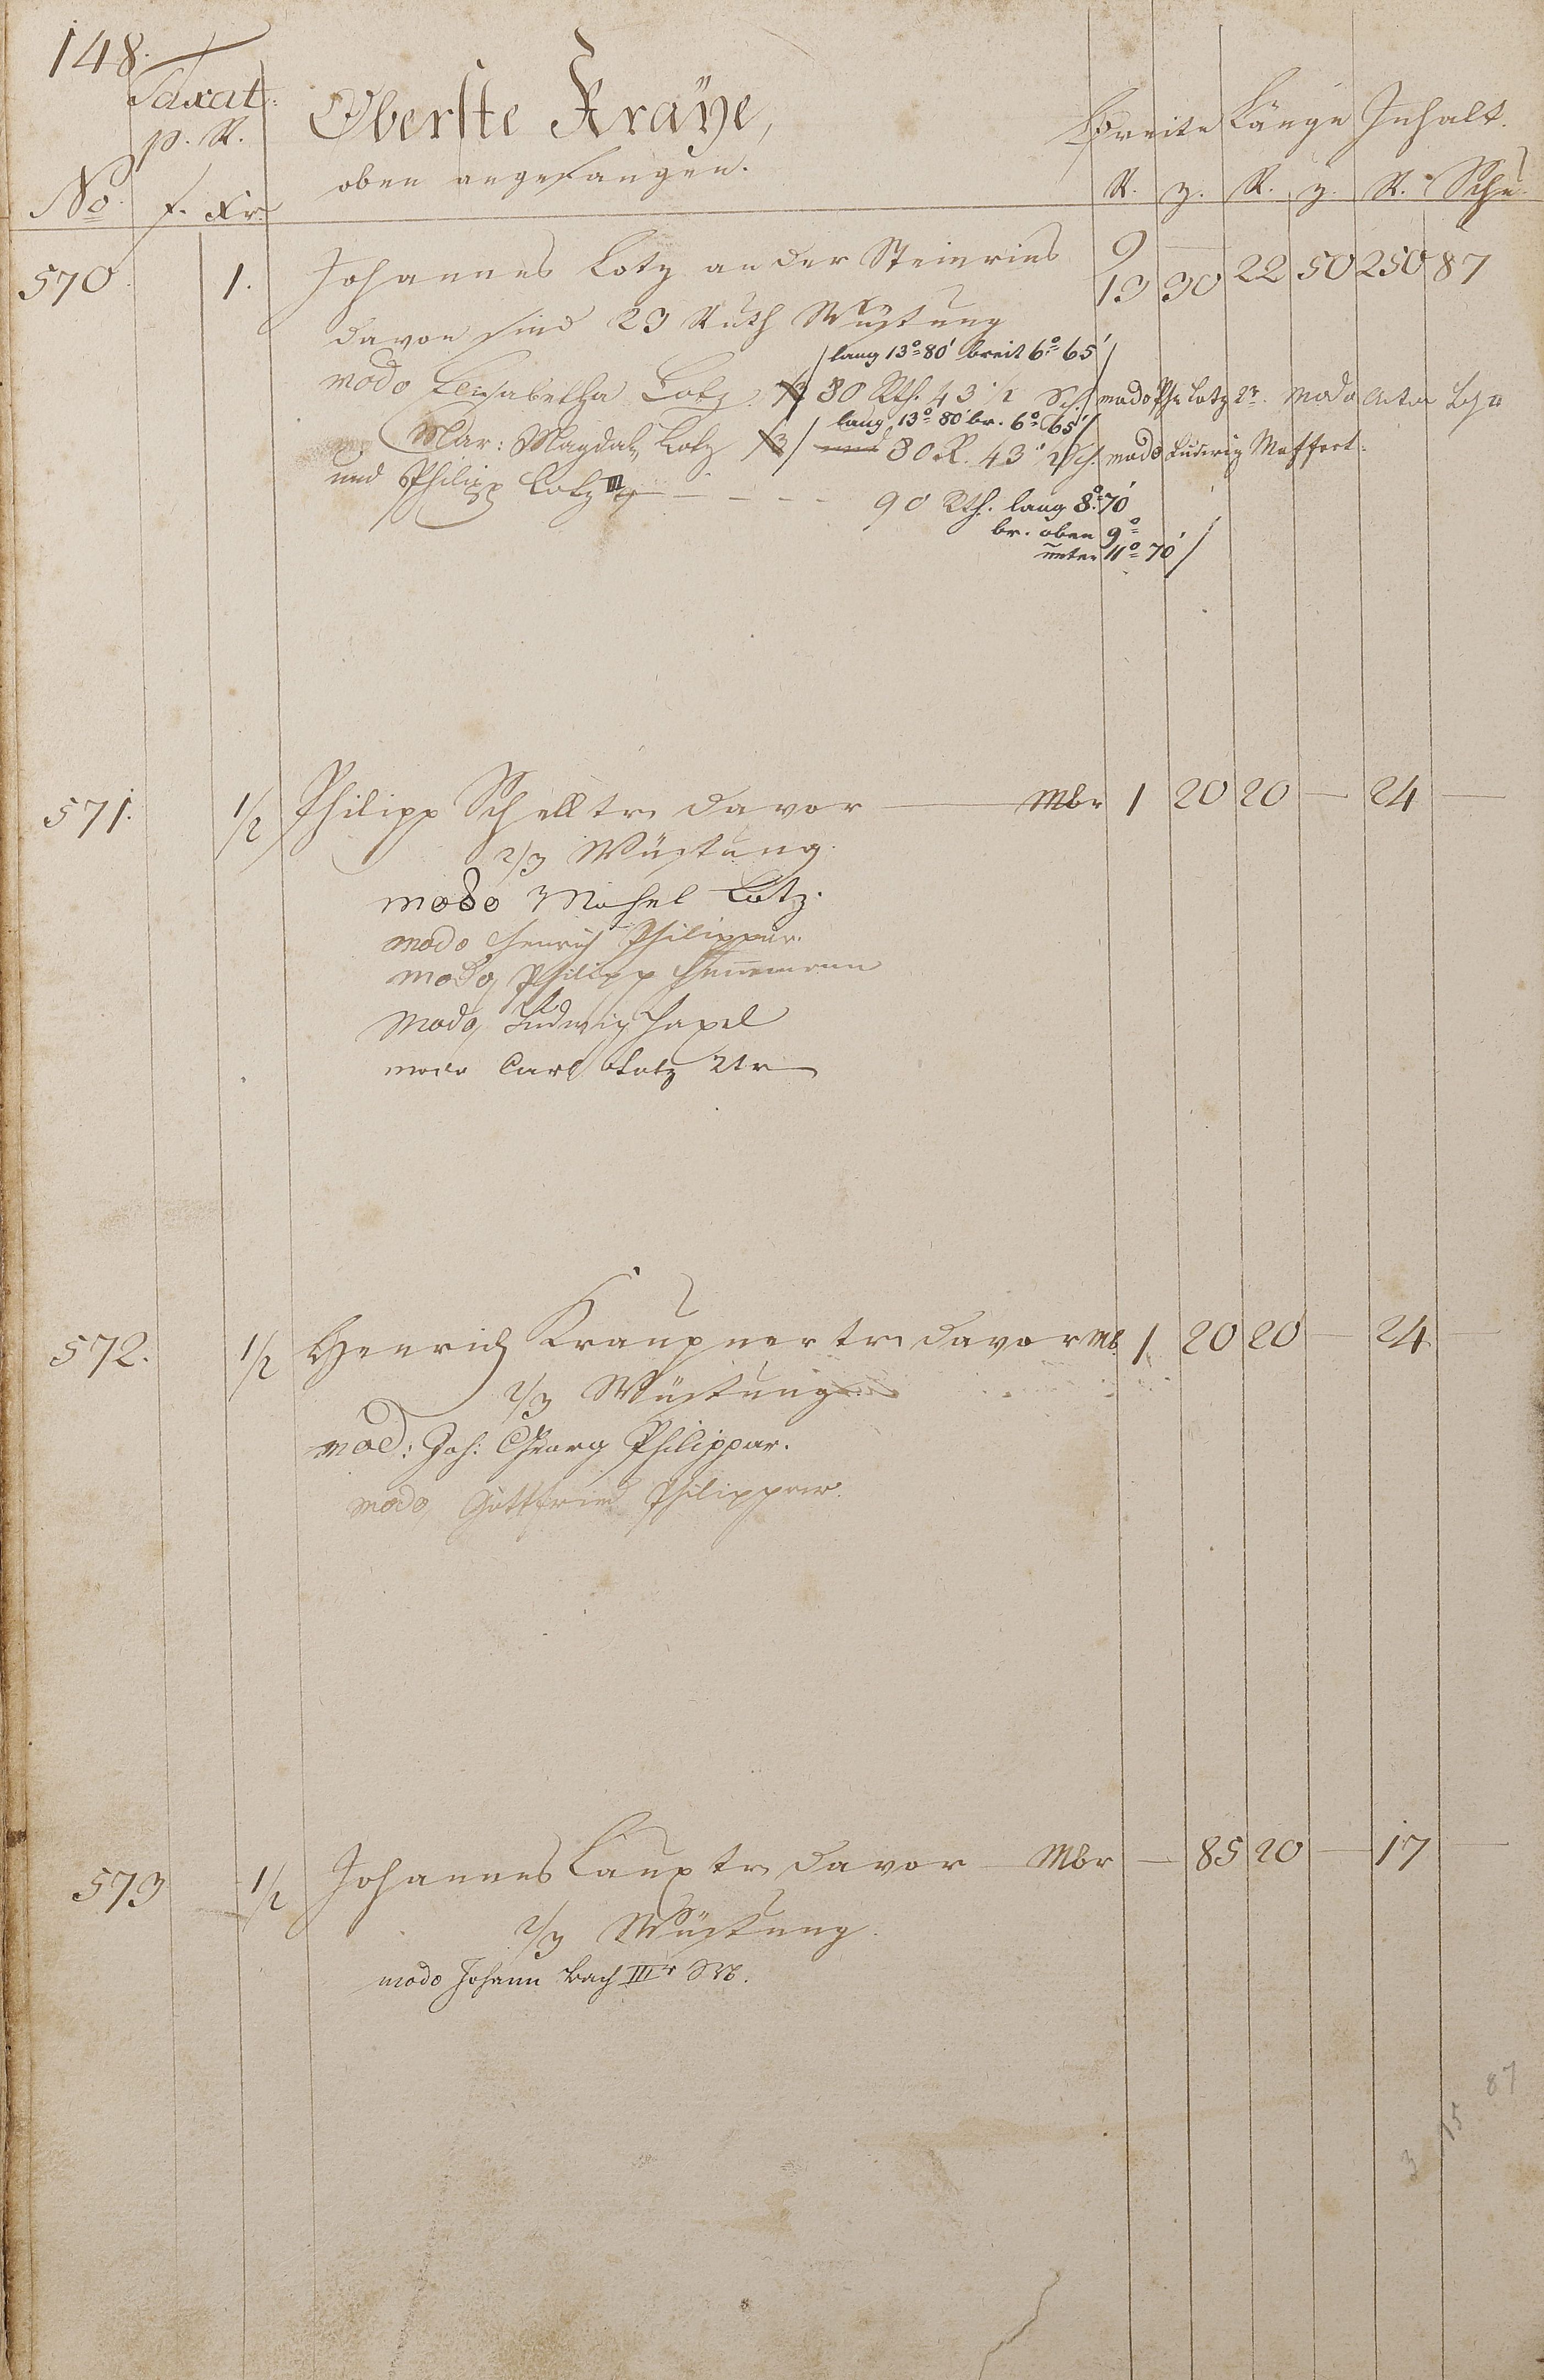 148.
Taxat:
p. R.
Oberste Kräye,
oben angefangen.
Breite Länge Inhalt.
No. f. Xr.
R. z. R. z. R. Schu
570. 1. Johannes Lotz an der Steinrins 9 — 13 30 22 50 250 87
davon sind 23 Ruth Wüstung
/lang 13°80' breit 6°65'/
modo Elisabetha Lotz 80 Rth. 43 1/2 Sch modo Ph: Lotz 2r. modo
/lang 13°80' br. 6°65'/
Mar: Magdal. Lotz 80 R. 43 1/2 Sch. modo Ludwig Meffert.
und Philipp Lotz III 90 Rth. lang 8°70'
br. oben 9°
unten 11°70'/
571. 1/2 Philipp Schelltr davor — Mbr 1 20 20 — 24 —
2/3 Wüstung.
modo Michel Lotz.
modo Henrich Philippar.
modo Philipp Hennemann
Modo Ludwig Hapel
modo Carl Lotz 2tr
572. 1/2 Henrich Kraupner tr davor Mb 1 20 20 — 24 —
2/3 Wüstung
mod: Joh: Georg Philippar.
modo Gottfried Philippar.
573 1/2 Johannes Laux tr davor — Mbr — 85 20 — 17 —
2/3 Wüstung.
modo Johann Bach IIIr
87
15
3